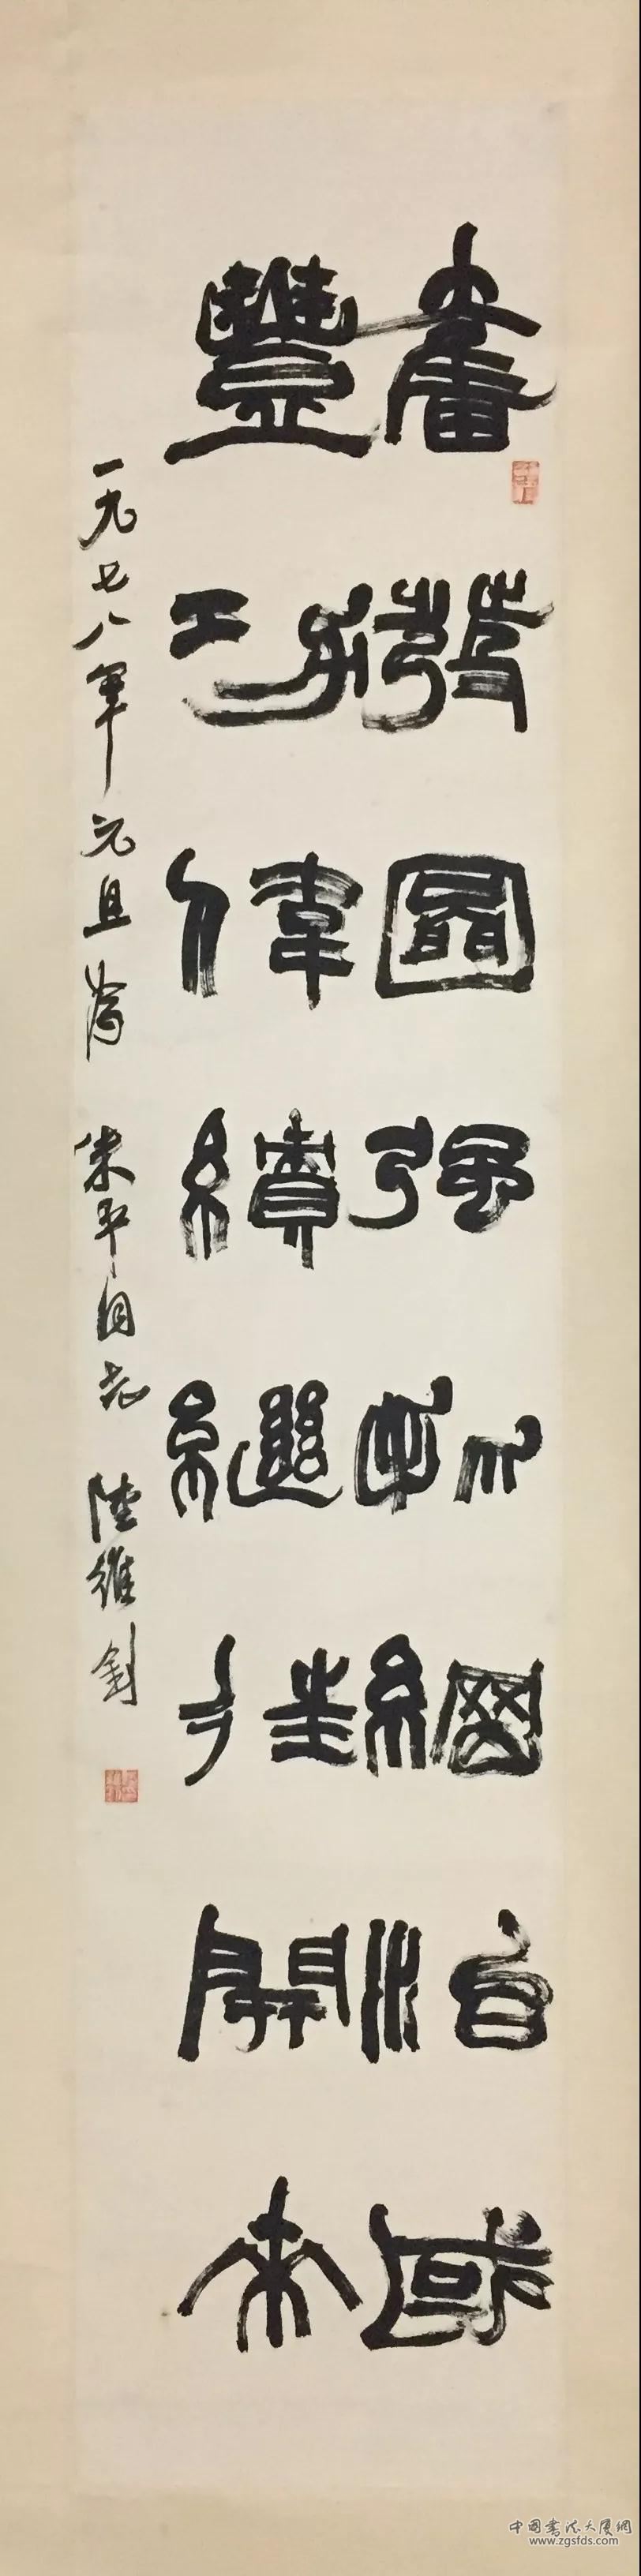 奮發圖強抓綱治國
豐功偉績繼往開來
一九七八年元旦為 朱平同志 陸維釗
中国书法大厦網
www.zgsfds.com